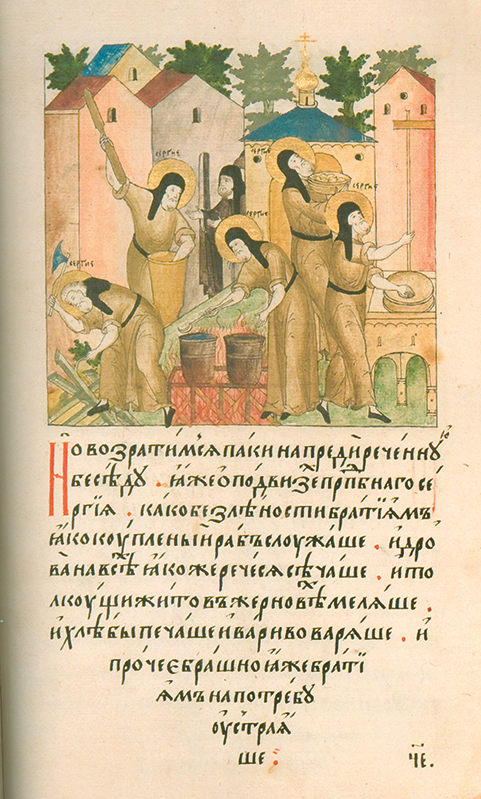 сергїе
сергїе
сергїе
сергїе
сергїе
Но возратимсѧ паки на преди реченную
бесѣду . ꙗже о подвизе прⷣпбнаго се
ргїꙗ . како без лѣности братїꙗмъ
ꙗко коупленый рабъ слоужаше . и дро
ва на всѣⷯ ꙗко же речесѧ сѣчаше . и то
лкоущи жито въ жерновѣⷯ мелѧше .
и хлѣбы печаше и вариво варѧше . и
прочее брашно ꙗже братї
ꙗмъ на потребу
оустраꙗ
ше :